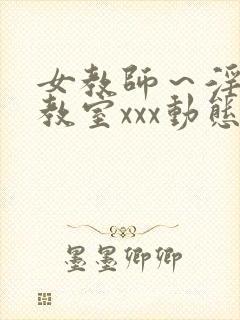 女教師～淫
教室xxx動態
墨墨卿卿